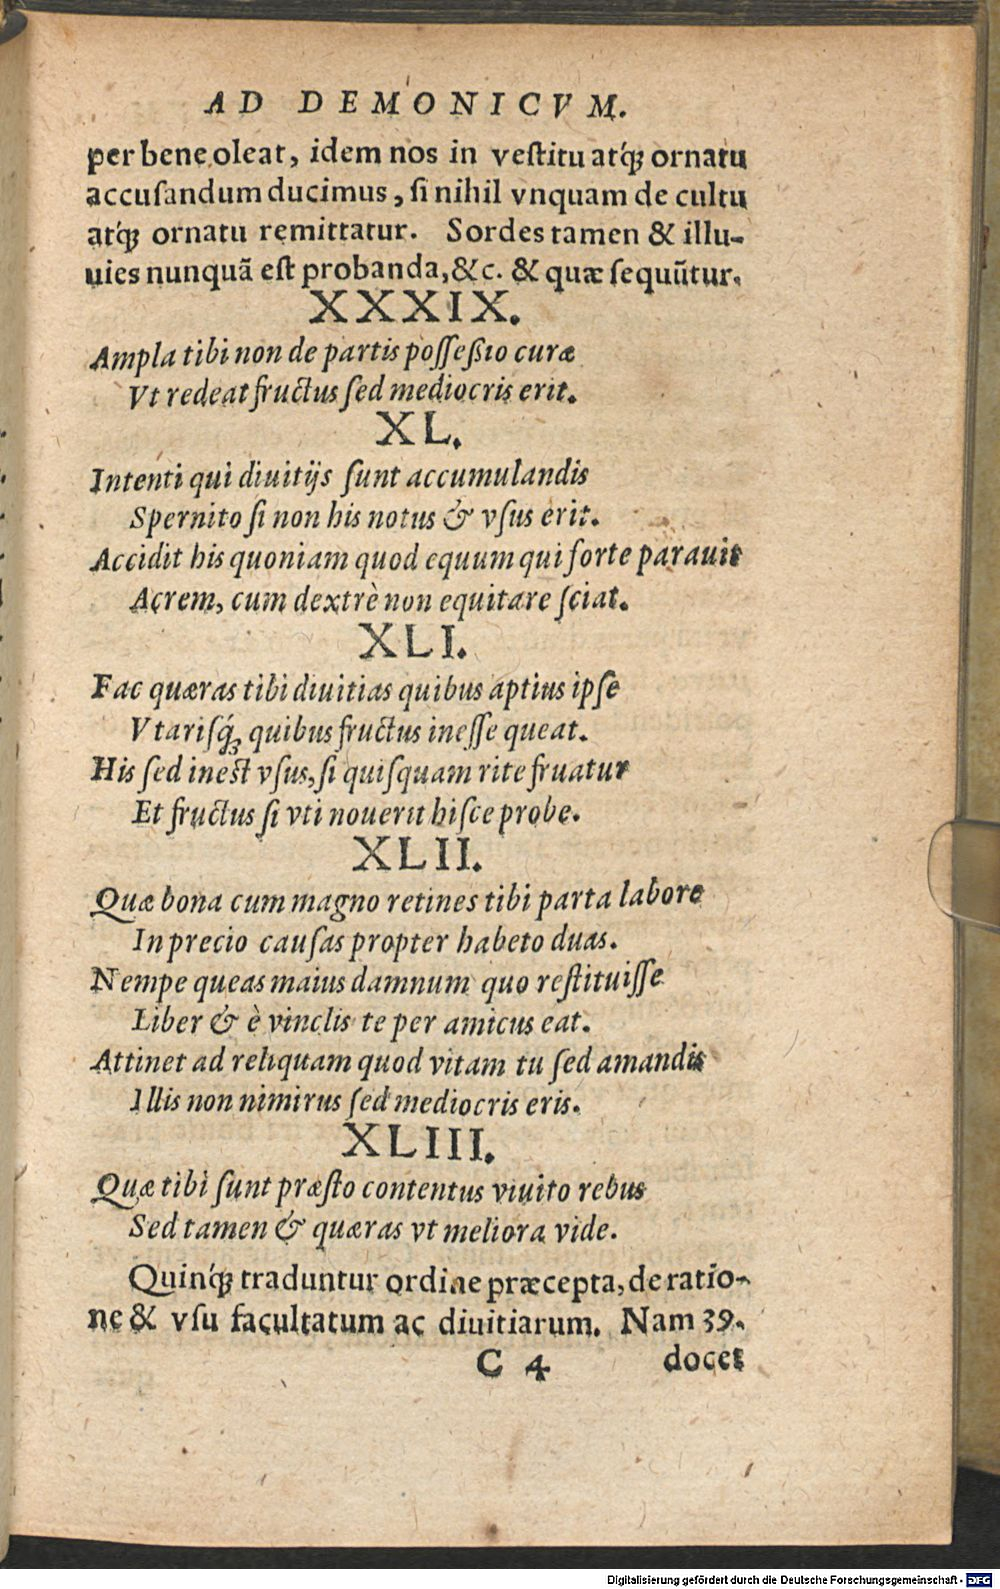 AD DEMONICVM.
per bene oleat, idem nos in veſtitu atq́; ornatu
accuſandum ducimus, ſi nihil vnquam de cultu
atq́; ornatu remittatur. Sordes tamen & illu-
uies nunquã eſt probanda, &c. & quæ ſequũtur.
XXXIX.
Ampla tibi non de partis poſſeßio curæ
Vt redeat fructus ſed mediocris erit.
XL.
Intenti qui diuitijs ſunt accumulandis
Spernito ſi non his notus & vſus erit.
Accidit his quoniam quod equum qui forte parauit
Acrem, cum dextrè non equitare ſciat.
XLI.
Fac quæras tibi diuitias quibus aptius ipſe
Vtariſq́; quibus fructus ineſſe queat.
His ſed ineſt vſus, ſi quiſquam rite fruatur
Et fructus ſi vti nouerit hiſce probe.
XLII.
Quæ bona cum magno retines tibi parta labore
In precio cauſas propter habeto duas.
Nempe queas maius damnum quo reſtituiſſe
Liber & è vinclis te per amicus eat.
Attinet ad reliquam quod vitam tu ſed amandis
Illis non nimirus ſed mediocris eris.
XLIII.
Quæ tibi ſunt præſto contentus viuito rebus
Sed tamen & quæras vt meliora vide.
Quinq́; traduntur ordine præcepta, de ratio-
ne & vſu facultatum ac diuitiarum. Nam 39.
C 4 docet
Digitalisierung gefördert durch die Deutsche Forschungsgemeinschaft - DFG